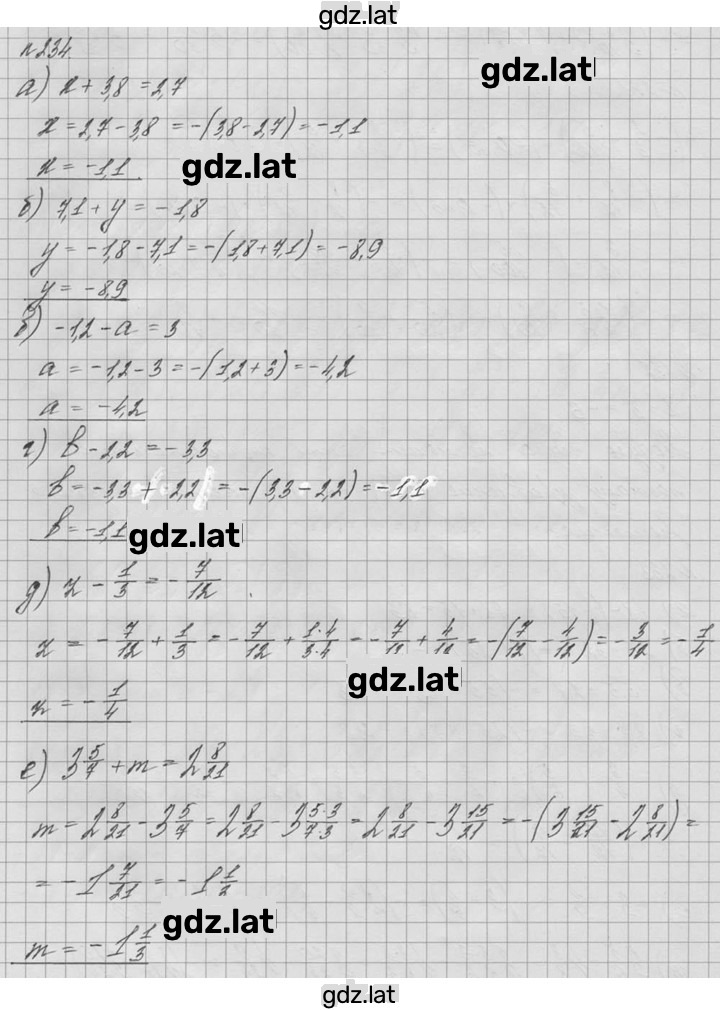 gdz.lat
n234.
gdz.lat
а) x + 3,8 = 2,7
x = 2,7 - 3,8 = -(3,8 - 2,7) = -1,1
x = -1,1.
gdz.lat
б) 7,1 + y = -1,8
y = -1,8 - 7,1 = -(1,8 + 7,1) = -8,9
y = -8,9
в) -1,2 - a = 3
a = -1,2 - 3 = -(1,2 + 3) = -4,2
a = -4,2
г) b - 2,2 = -3,3
b = -3,3 + 2,2 = -(3,3 - 2,2) = -1,1
b = -1,1
gdz.lat
д) x - 1/3 = -7/12
x = -7/12 + 1/3 = -7/12 + 1·4/3·4 = -7/12 + 4/12 = -(7/12 - 4/12) = -3/12 = -1/4
gdz.lat
x = -1/4
е) 3 5/7 + m = 2 8/21
m = 2 8/21 - 3 5/7 = 2 8/21 - 3 5·3/7·3 = 2 8/21 - 3 15/21 = -(3 15/21 - 2 8/21) =
= -1 7/21 = -1 1/2
gdz.lat
m = -1 1/3
gdz.lat